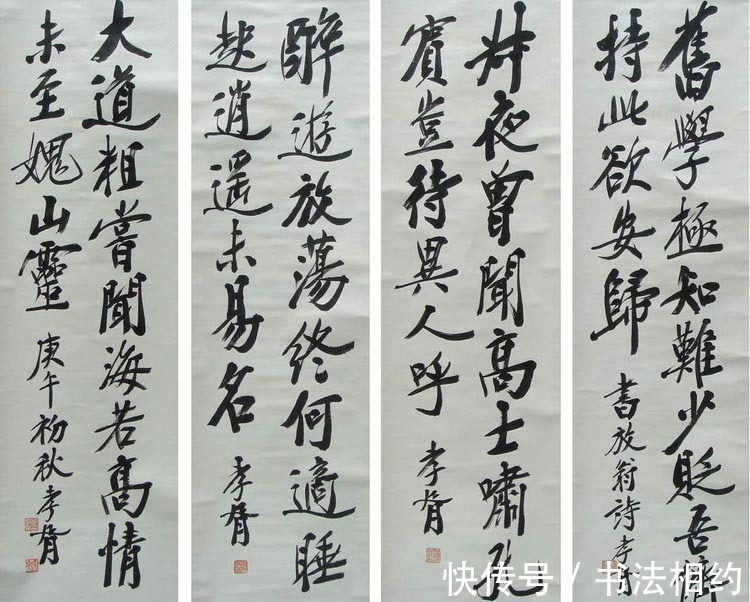 舊學極知難少貶吾儕
持此欲安歸
書放翁詩 孝胥
叔夜曾聞高士嘯孔
賓豈待異人呼
孝胥
醉遊放蕩終何適睡
起逍遙未易名
孝胥
大道粗嘗聞海若高情
未至媿山靈
庚午初秋孝胥
快传号 / 书法相约